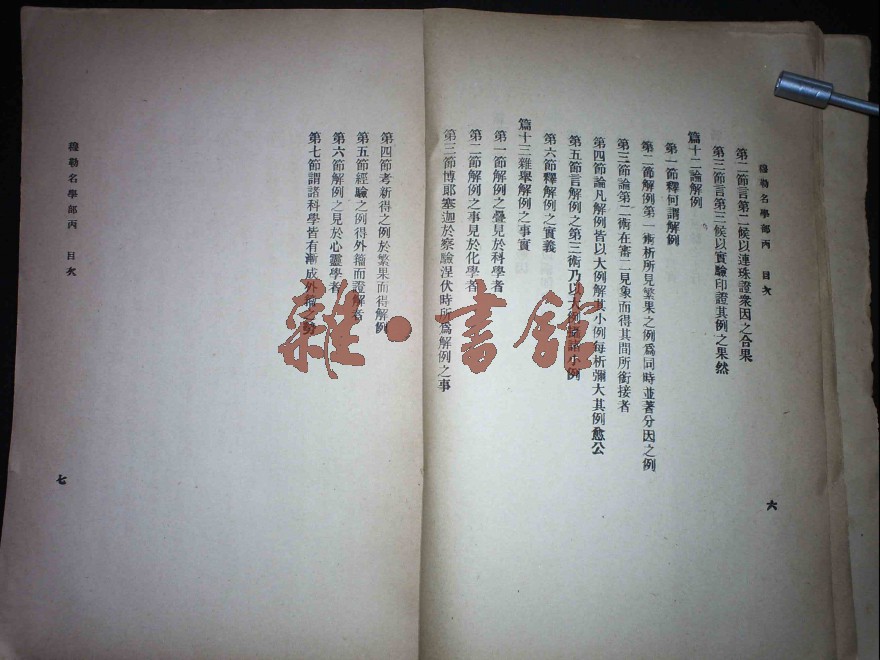 穆勒名學部丙 目次
第二節言第二候以連珠證衆因之合果
第三節言第三候以實驗印證其例之果然
篇十二論解例
第一節釋何謂解例
第二節解例第一術析所見繁果之例爲同時並著分因之例
第三節論第二術在審二見象而得其間所銜接者
第四節論凡解例皆以大例解其小例每析彌大其例愈公
第五節言解例之第三術乃以大例 諸小例
第六節釋解例之實義
篇十三雜舉解例之事實
第一節解例之疊見於科學者
第二節解例之事見於化學者
第三節博郎塞迦於察驗涅伏時所爲解例之事
六
第四節考新得之例於繁果而得解例
第五節經驗之例得外籀而證解者
第六節解例之見於心靈學者
第七節謂諸科學皆有漸成外籀之勢
穆勒名學部丙 目次
七
雜·書館